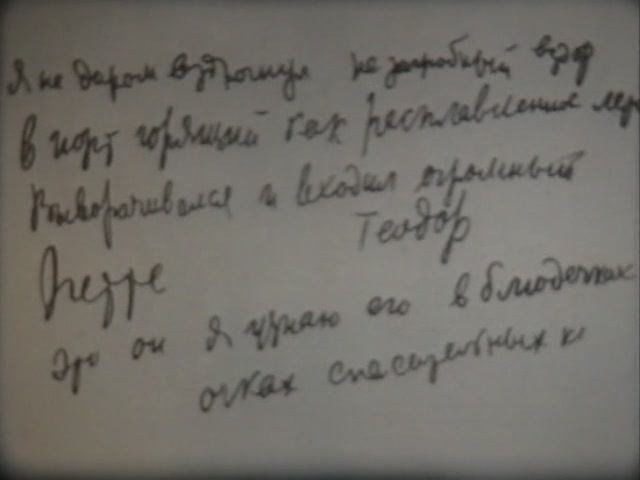 Я не даром вздрогнул не загробный вздор
В порт горящий как расплавленное лет
Выворачивался и входил огромный
Теодор
Нетте
Это он я узнаю его в блюдечках
очках спасательных к